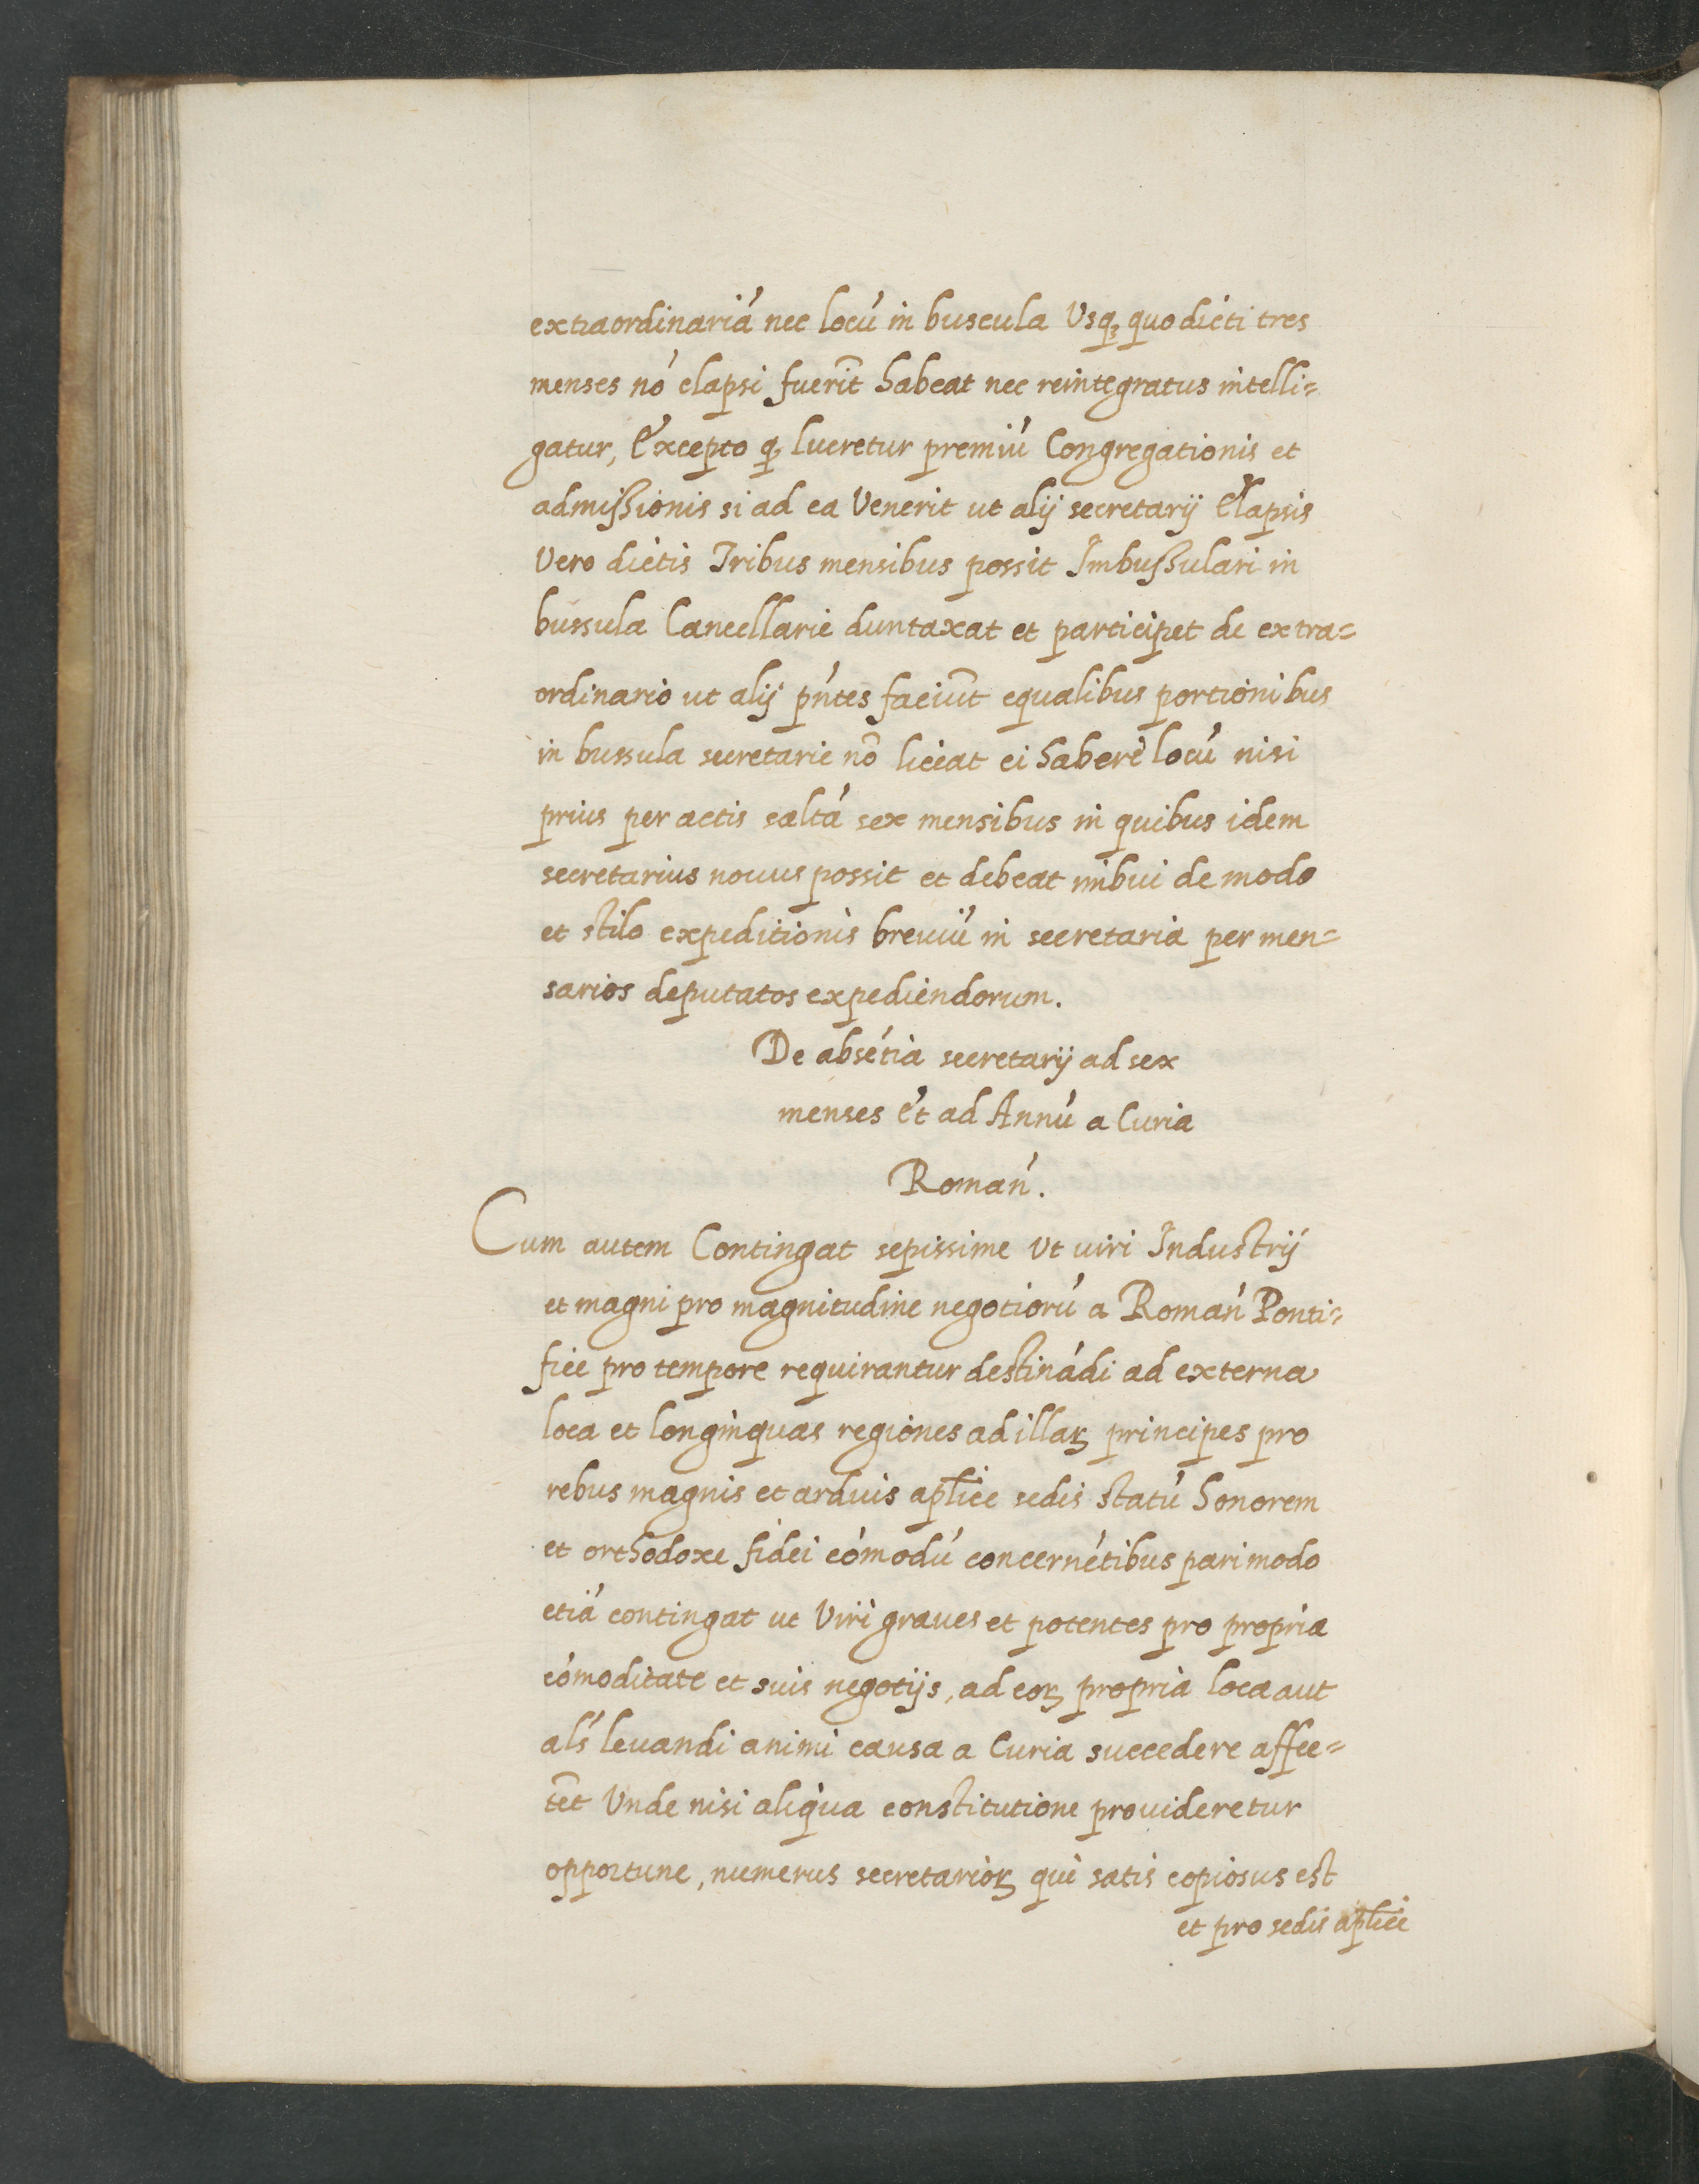 extraordinariá nec locú in buscula Usq; quo dicti tres
menses nó elapsi fuerit̄ habeat nec reintegratus intelli=
gatur, Excepto q; lucretur premiú Congregationis et
admissionis si ad ea Venerit ut alij secretarij Elapsis
Vero dictis Tribus mensibus possit Imbussulari in
bussula Cancellarie duntaxat et participet de extra=
ordinario ut alij pńtes faciūt equalibus portionibus
in bussula secretarie nō liceat ei habere locú nisi
prius per actis saltá sex mensibus in quibus idem
secretarius nouus possit et debeat imbui de modo
et stilo expeditionis breuiú in secretaria per men=
sarios deputatos expediendorum.
De abséтia secretarij ad sex
menses Et ad Annú a Curia
Romań.
Cum autem Contingat sepissime Ut uiri Industrij
et magni pro magnitudine negotiorú a Romań Ponti=
fice pro tempore requirantur destinádi ad externa
loca et longinquas regiones ad illaꝝ principes pro
rebus magnis et arduis apl̄ice sedis statú honorem
et orthodoxe fidei cómodú concernétibus pari modo
etiá contingat ut Viri graues et potentes pro propria
cómoditate et suis negotijs, ad eoꝝ propria loca aut
alś leuandi animi causa a Curia succedere affec=
tēt Unde nisi aliqua constitutione prouideretur
opportune, numerus secretarioꝝ qui satis copiosus est
et pro sedis apl̄ice